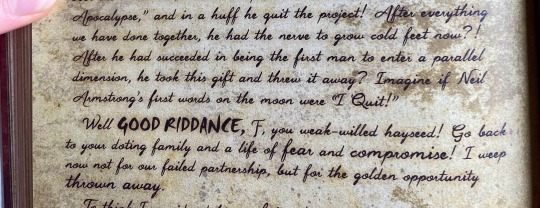 Apocalypse," and in a huff he quit the project! After everything
we have done together, he had the nerve to grow cold feet now?!
After he had succeeded in being the first man to enter a parallel
dimension, he took this gift and threw it away? Imagine if Neil
Armstrong's first words on the moon were "I Quit!"
Well GOOD RIDDANCE, F, you weak-willed hayseed! Go back
to your doting family and a life of fear and compromise! I weep
now not for our failed partnership, but for the golden opportunity
thrown away.